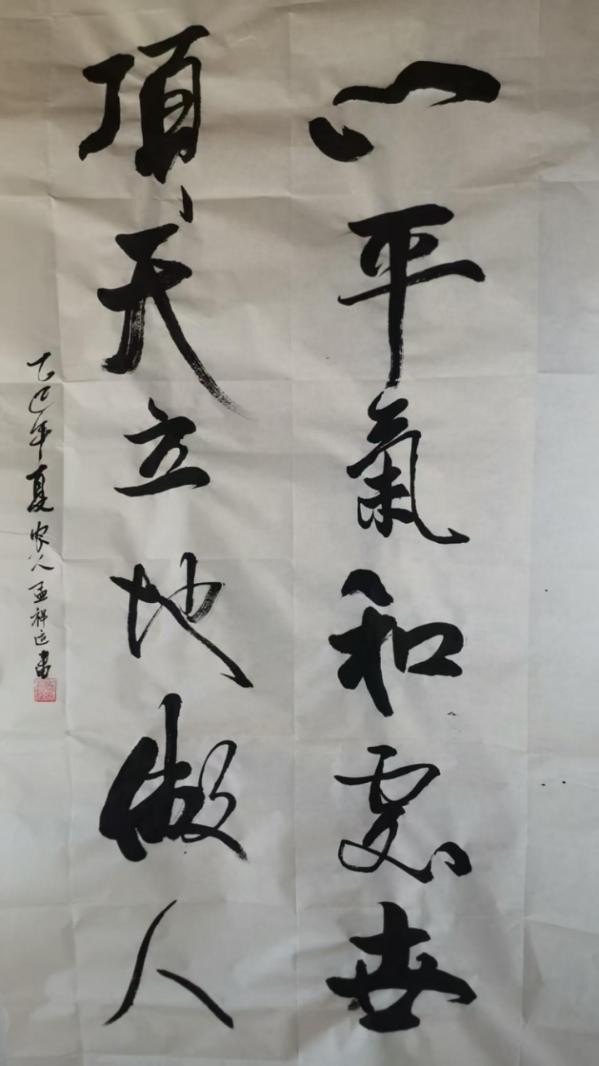 心平氣和處世
頂天立地做人
乙巳年夏 農人 孟祥运書